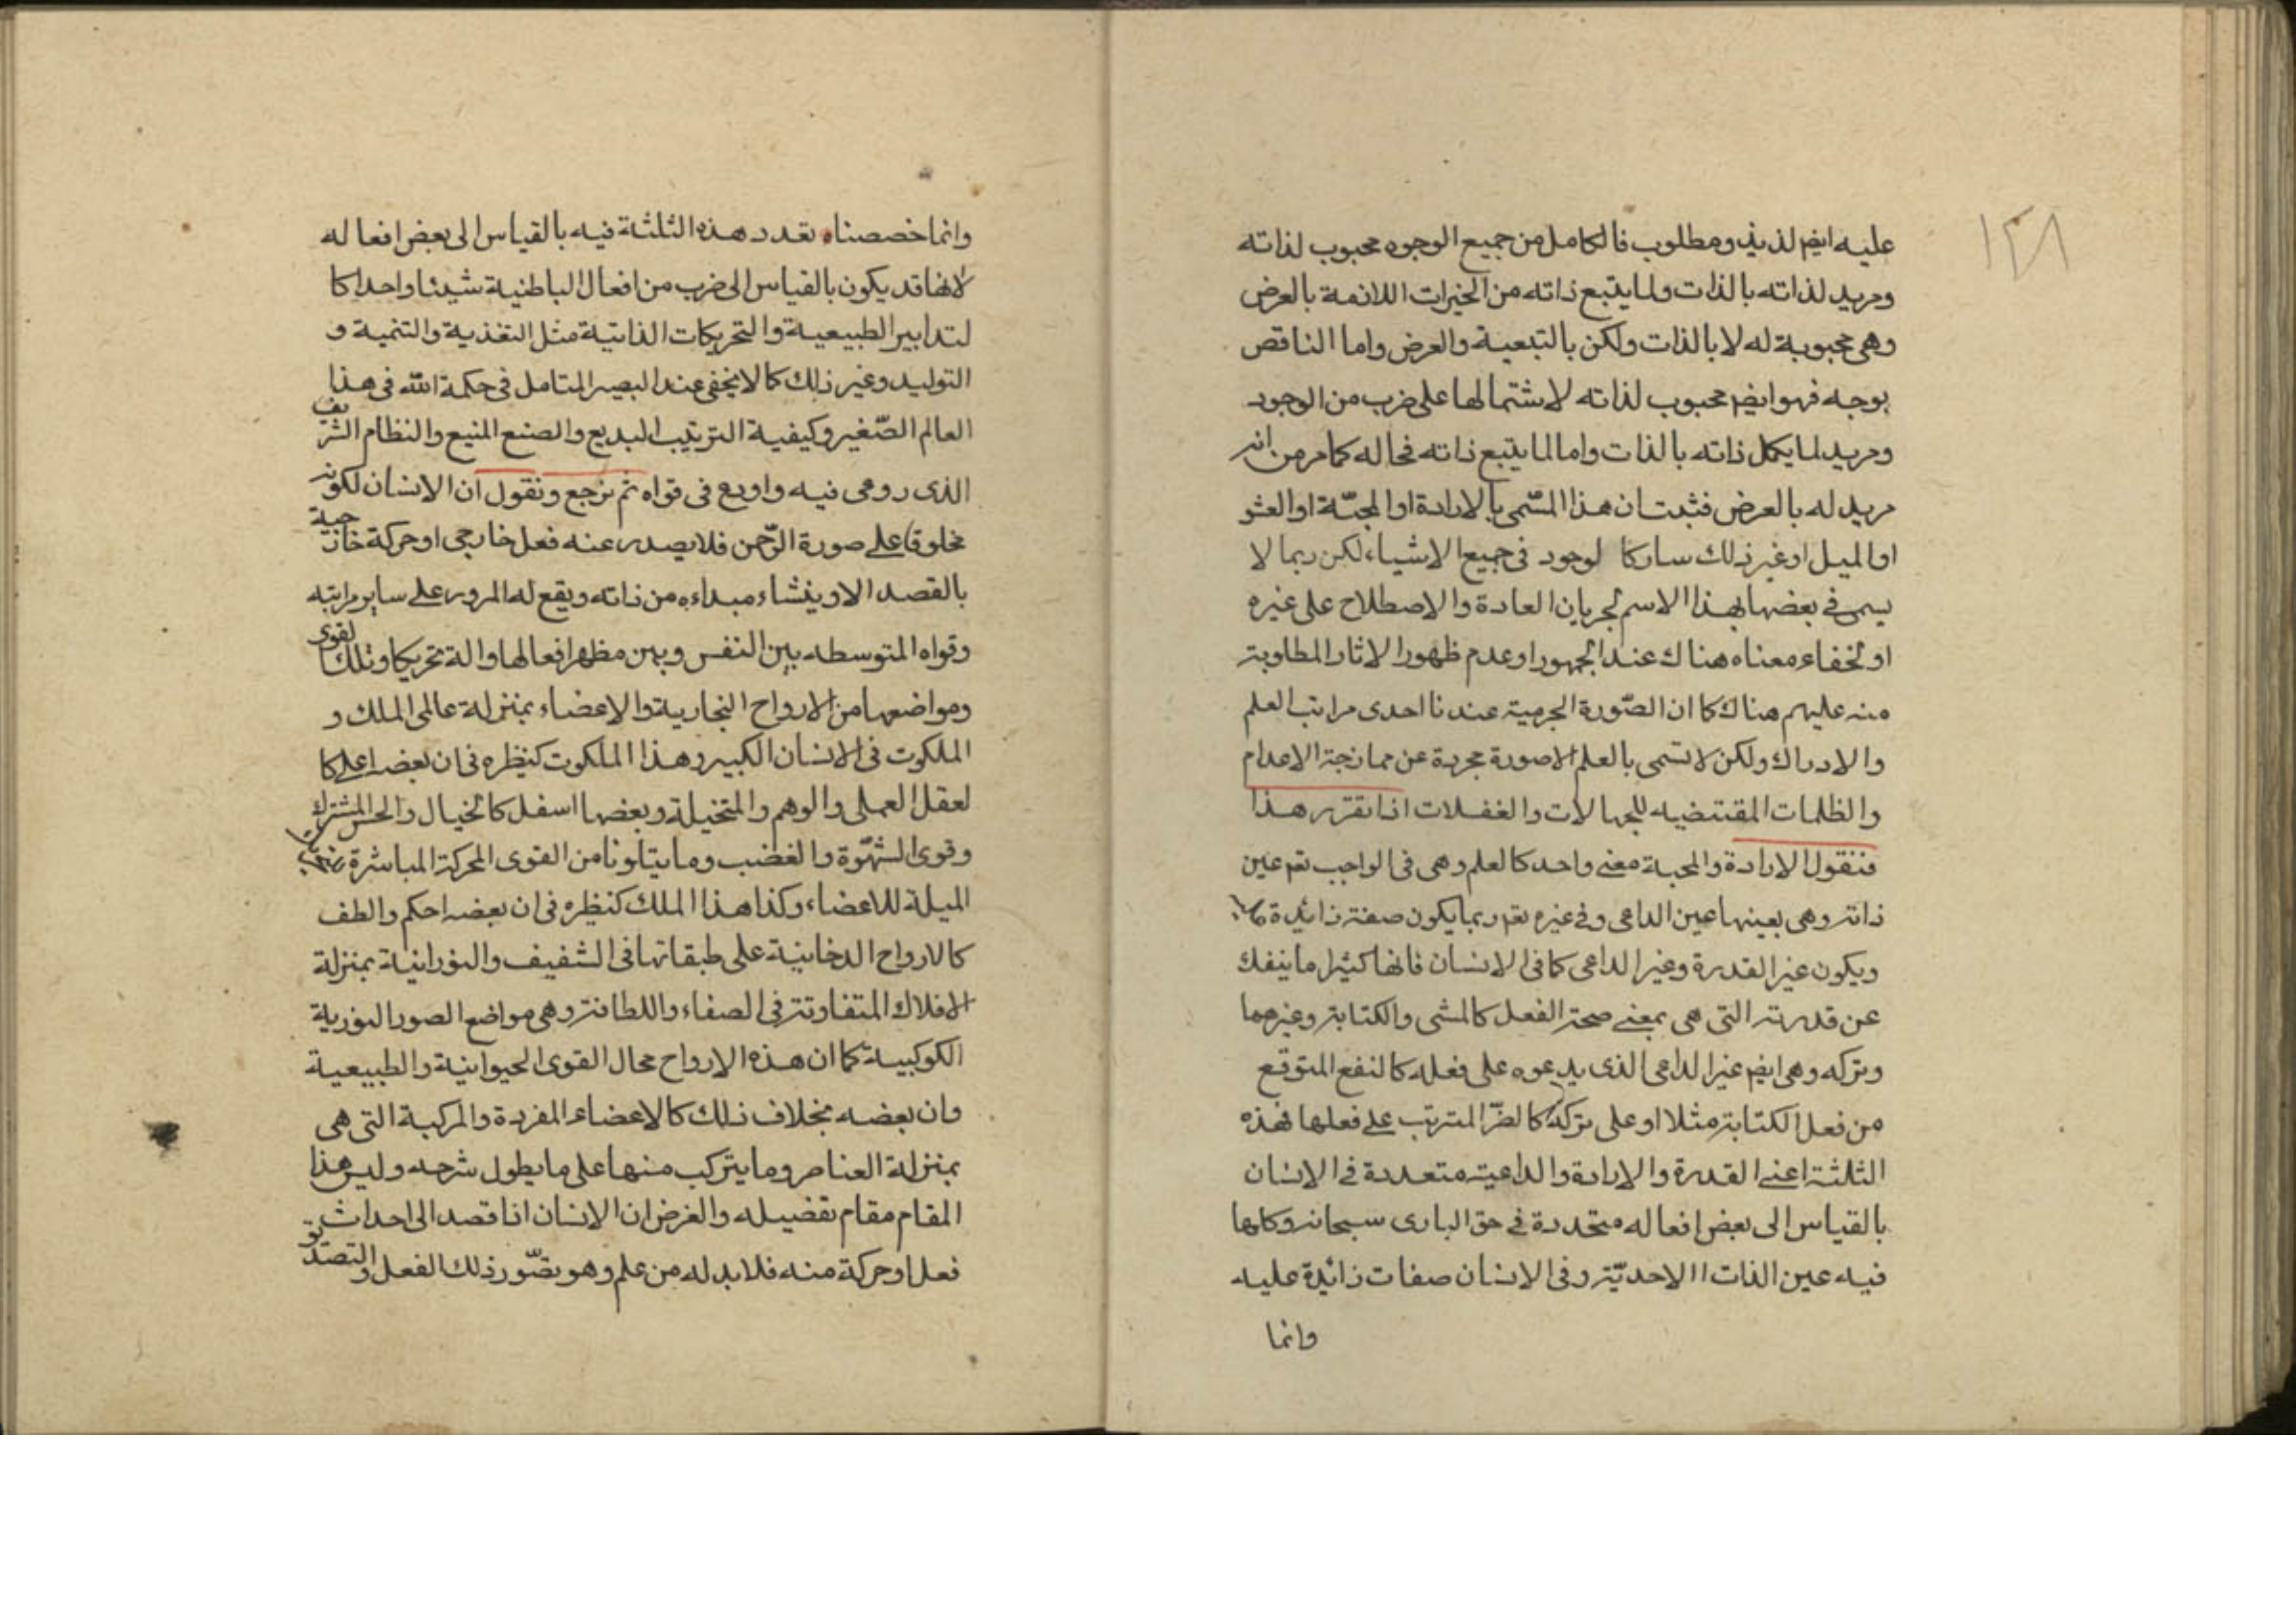 ١٢٨
عليه ايض لذيذ ومطلوب فالكامل من جميع الوجوه محبوب لذاته
ومريد لذاته بالذات ولما يتبع ذاته من الخيرات اللازمة بالعرض
وهى محبوبة له لا بالذات ولكن بالتبعية والعرض واما الناقص
بوجه فهو ايض محبوب لذاته لاشتمالها على ضرب من الوجود
ومريد لما يكمل ذاته بالذات واما لما يتبع ذاته فحاله كما مر من انه
مريد له بالعرض فثبت ان هذا المسمى بالارادة او المحبّة او العشو
او الميل او غير ذلك سار كا لوجود فى جميع الاشياء لكن ربما لا
يسمى فى بعضها بهذا الاسم لجريان العادة والاصطلاح على غيره
او لخفاء معناه هناك عند الجمهور او عدم ظهور الاثار المطلوبة
منه عليهم هناك كا ان الصّورة الجرمية عندنا احدى مراتب العلم
والادراك ولكن لا تسمى بالعلم الا صورة مجردة عن ممازجة الاعدام
والظلمات المقتضيه للجهالات والغفلات اذا تقرر هذا
فنقول الارادة والمحبة معنى واحد كالعلم وهى فى الواجب تعم عين
ذاته وهى بعينها عين الداعى وفى غيره تعم ربما يكون صفة زائدة عليه
ويكون غير القدرة وغير الداعى كا فى الانسان فانها كثيرا ما ينفك
عن قدرته التى هى بمعنى صحة الفعل كالمشى والكتابة وغيرهما
وتركه وهى ايض غير الداعى الذى يدعوه على فعله كالنفع المتوقع
من فعل الكتابة مثلا او على تركه كالضرّ المترتب على فعلها فهذه
الثلثة اعنى القدرة والارادة والداعية متعددة فى الانسان
بالقياس الى بعض افعاله متحددة فى حق البارى سبحانه وكلها
فيه عين الذات الاحديّة وفى الانسان صفات زائدة عليه
وانما
وانما خصصناه تعدد هذه الثلثة فيه بالقياس الى بعض افعاله
لانها قد يكون بالقياس الى ضرب من افعال الباطنية شيئا واحدا كا
لتدابير الطبيعية والتحريكات الذاتية مثل التغذية والتنمية و
التوليد وغير ذلك كا لا يخفى عند البصير المتامل فى حكمة الله فى هذا
العالم الصّغير وكيفية الترتيب البديع والصنع المنيع والنظام الشريف
الذى روعى فيه واودع فى قواه ثم نرجع ونقول ان الانسان لكونه
مخلوقا على صورة الرّحمن فلا يصدر عنه فعل خارجى او حركة خارجية
بالقصد الا وينشاء مبداءه من ذاته ويقع له المرور على ساير مراتبه
وقواه المتوسطه بين النفس وبين مظهر افعالها والة تحريكا وتلك القوى
ومواضعها من الارواح البخارية والاعضاء بمنزلة عالمى الملك و
الملكوت فى الانسان الكبير وهذا الملكوت كنظيره فى ان بعضها على كا
لعقل العملى والوهم والمتخيلة وبعضها اسفل كالخيال والحس المشترك
وقوى الشهّوة والغضب وما يتلونا من القوى المحركة المباشرة
الميلة للاعضاء وكذا هذا الملك كنظيره فى ان بعضه احكم والطف
كالارواح الدخانية على طبقاتها فى الشفيف والنورانية بمنزلة
الافلاك المتفاوتة فى الصفاء واللطافة وهى مواضع الصور النورية
الكوكبية كما ان هذه الارواح محال القوى الحيوانية والطبيعية
وان بعضه بخلاف ذلك كالاعضاء المفردة والمركبة التى هى
بمنزلة العناصر وما يتركب منها على ما يطول شرحه وليس هذا
المقام مقام تفضيله والغرض ان الانسان اذا قصد الى احداث
فعل او حركة منه فلا بد له من علم وهو تصّور ذلك الفعل والتصديق